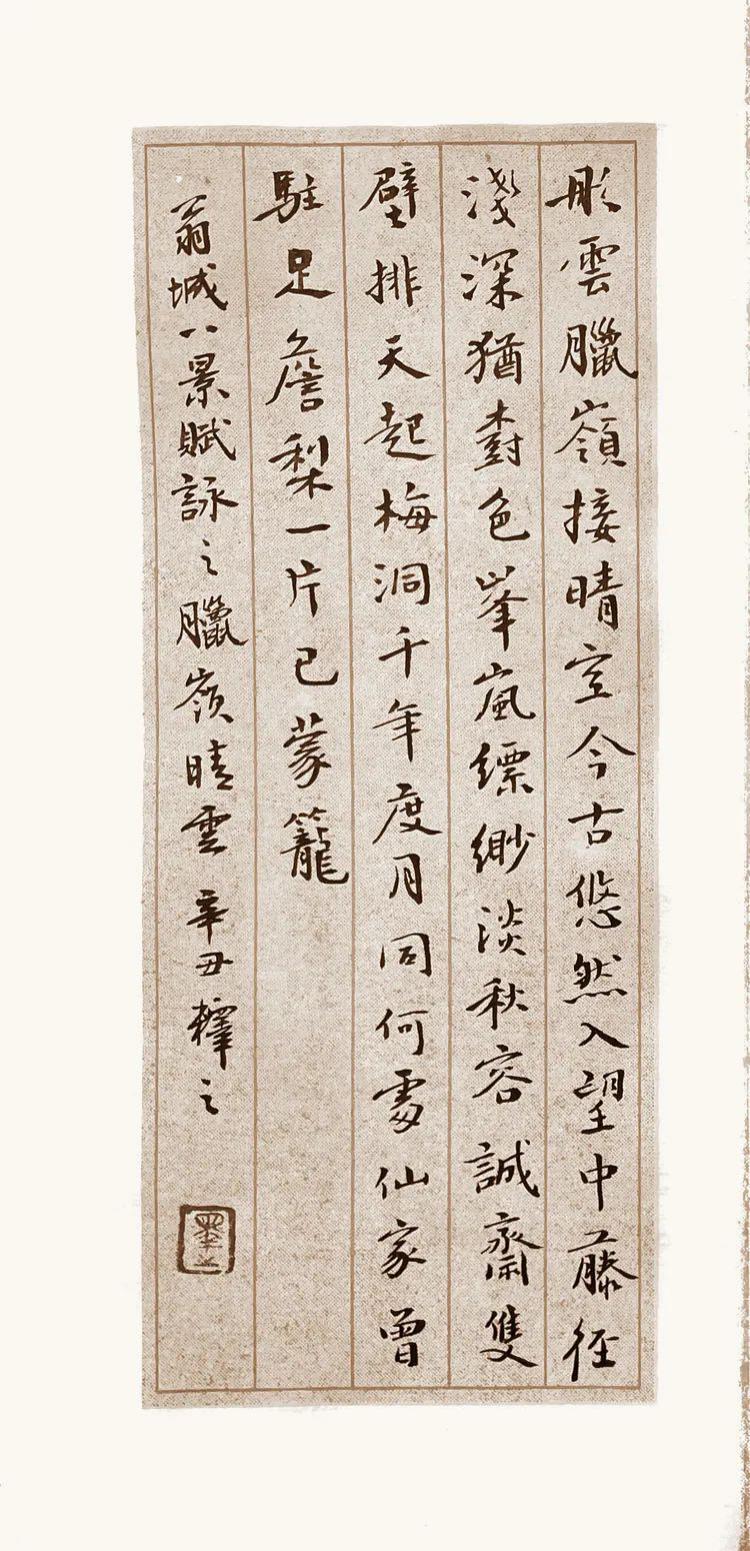 彤雲臘嶺接晴空今古悠然入望中藤徑
淺深猶樹色峯嵐縹緲淡秋容誠齋雙
壁排天起梅洞千年度月同何處仙家曾
駐足詹梨一片已蒙籠
翁城八景賦詠之臘嶺晴雲 辛丑 之